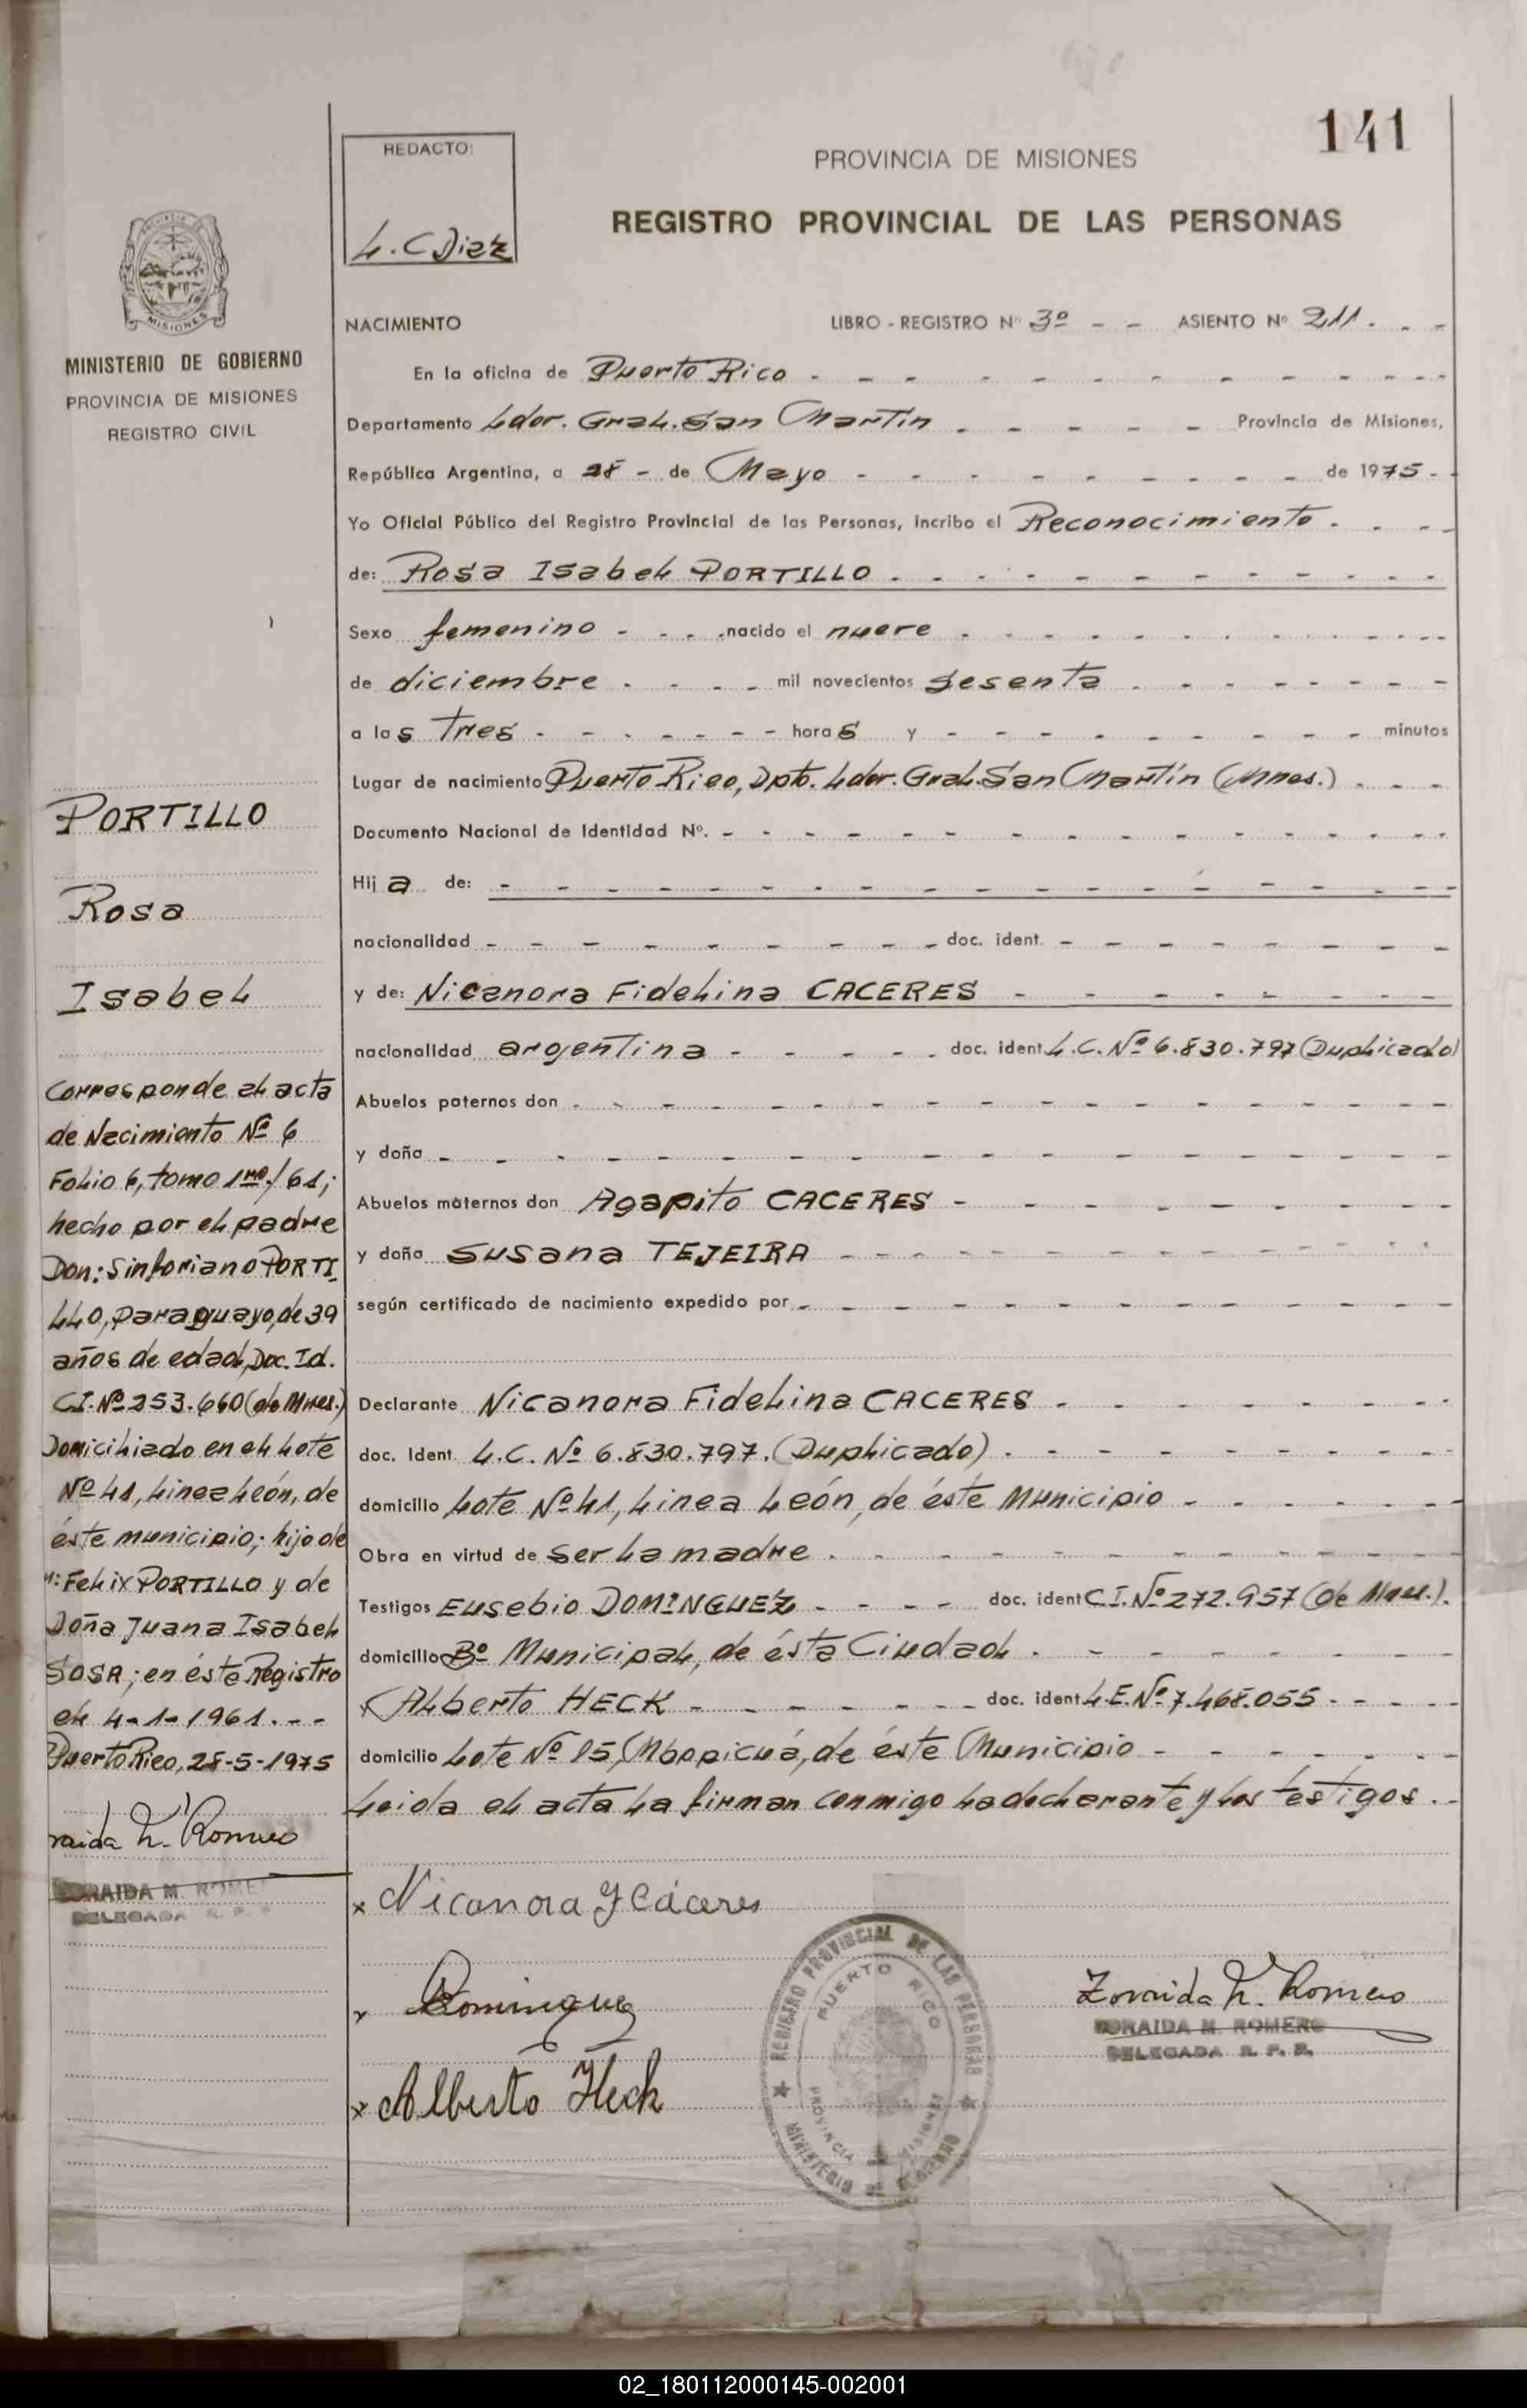 141
REDACTO:
L. C Diaz
PROVINCIA DE MISIONES
REGISTRO PROVINCIAL DE LAS PERSONAS
MISIONES
MINISTERIO DE GOBIERNO
PROVINCIA DE MISIONES
REGISTRO CIVIL
NACIMIENTO LIBRO - REGISTRO Nº 3º - - ASIENTO Nº 211. - -
En la oficina de Puerto Rico
Departamento Ldor. Gral. San Martín Provincia de Misiones,
República Argentina, a 28 - de Mayo de 1975 -
Yo Oficial Público del Registro Provincial de las Personas, incribo el Reconocimiento
de: Rosa Isabel PORTILLO
Sexo femenino nacido el nueve
de diciembre mil novecientos sesenta
a las tres horas y minutos
Lugar de nacimiento Puerto Rico, Dpto. Ldor. Gral. San Martín (Mnes.)
Documento Nacional de Identidad Nº.
Hija de:
nacionalidad doc. ident.
y de: Nicanora Fidelina CACERES
nacionalidad argentina doc. ident L.C. Nº 6.830.797 (Duplicado)
Abuelos paternos don
y doña
Abuelos maternos don Agapito CACERES
y doña Susana TEJEIRA
según certificado de nacimiento expedido por
Declarante Nicanora Fidelina CACERES
doc. Ident. L.C. Nº 6.830.797. (Duplicado)
domicilio Lote Nº 41, Linea León, de éste Municipio
Obra en virtud de ser la madre
Testigos Eusebio DOMINGUEZ doc. ident C.I. Nº 272.957 (de Mnes.).
domicilio Bº Municipal, de ésta Ciudad
Alberto HECK doc. ident L.E. Nº 7.468.055
domicilio Lote Nº 15, Mbopicuá, de éste Municipio
Leida el acta la firman conmigo la declarante y los testigos.
PORTILLO
Rosa
Isabel
Corresponde al acta
de Nacimiento Nº 6
Folio 6, tomo 1ro./61;
hecho por el padre
Don: Sinforiano PORTI
LLO, paraguayo, de 39
años de edad, Doc. Id.
C.I. Nº 253.660 (de Mnes.)
Domiciliado en el Lote
Nº 41, Linea León, de
éste municipio; hijo de
Felix PORTILLO y de
Doña Juana Isabel
SOSA; en éste Registro
el 4-1-1961. - -
Puerto Rico, 28-5-1975
raida M. Romero
ZORAIDA M. ROME
DELEGADA R. P. P
x Nicanora F Cáceres
Dominguez
x Alberto Heck
REGISTRO PROVINCIAL DE LAS PERSONAS
PUERTO RICO
PROVINCIA DE MISIONES
MINISTERIO DE GOBIERNO
Zoraida M. Romero
ZORAIDA M. ROMERO
DELEGADA R. P. P.
02_180112000145-002001